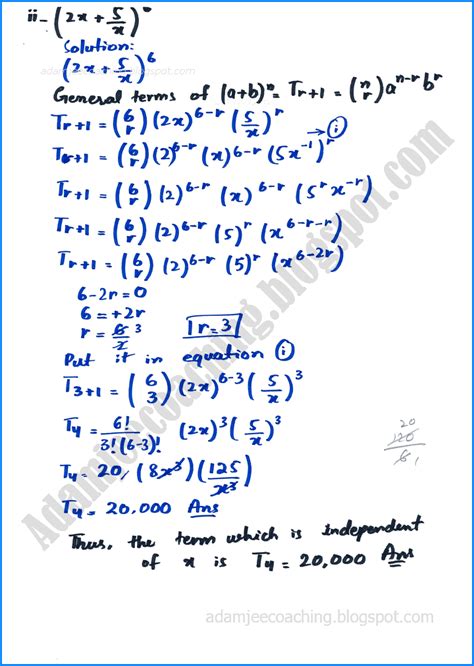 ii- (2x + 5/x)⁶
Solution:
(2x + 5/x)⁶
adamjeecoaching.blogspot.com
General terms of (a+b)ⁿ = Tr+1 = (n r) aⁿ⁻ʳ bʳ
Tr+1 = (6 r) (2x)⁶⁻ʳ (5/x)ʳ → (i)
Tr+1 = (6 r) (2)⁶⁻ʳ (x)⁶⁻ʳ (5x⁻¹)ʳ
Tr+1 = (6 r) (2)⁶⁻ʳ (x)⁶⁻ʳ (5ʳ x⁻ʳ)
Tr+1 = (6 r) (2)⁶⁻ʳ (5)ʳ (x⁶⁻ʳ⁻ʳ)
Tr+1 = (6 r) (2)⁶⁻ʳ (5)ʳ (x⁶⁻²ʳ)
6-2r = 0
6 = +2r
r = 6/2 3 r = 3
Put it in equation (i)
T3+1 = (6 3) (2x)⁶⁻³ (5/x)³
T4 = 6!/3!(6-3)! (2x)³ (5/x)³
20
120
6 1
T4 = 20 (8x³) (125/x³)
T4 = 20,000 Ans
Thus, the term which is independent
of x is T4 = 20,000 Ans
Adamjeecoaching.blogspot.com
adamjeecoaching.blogspot.com